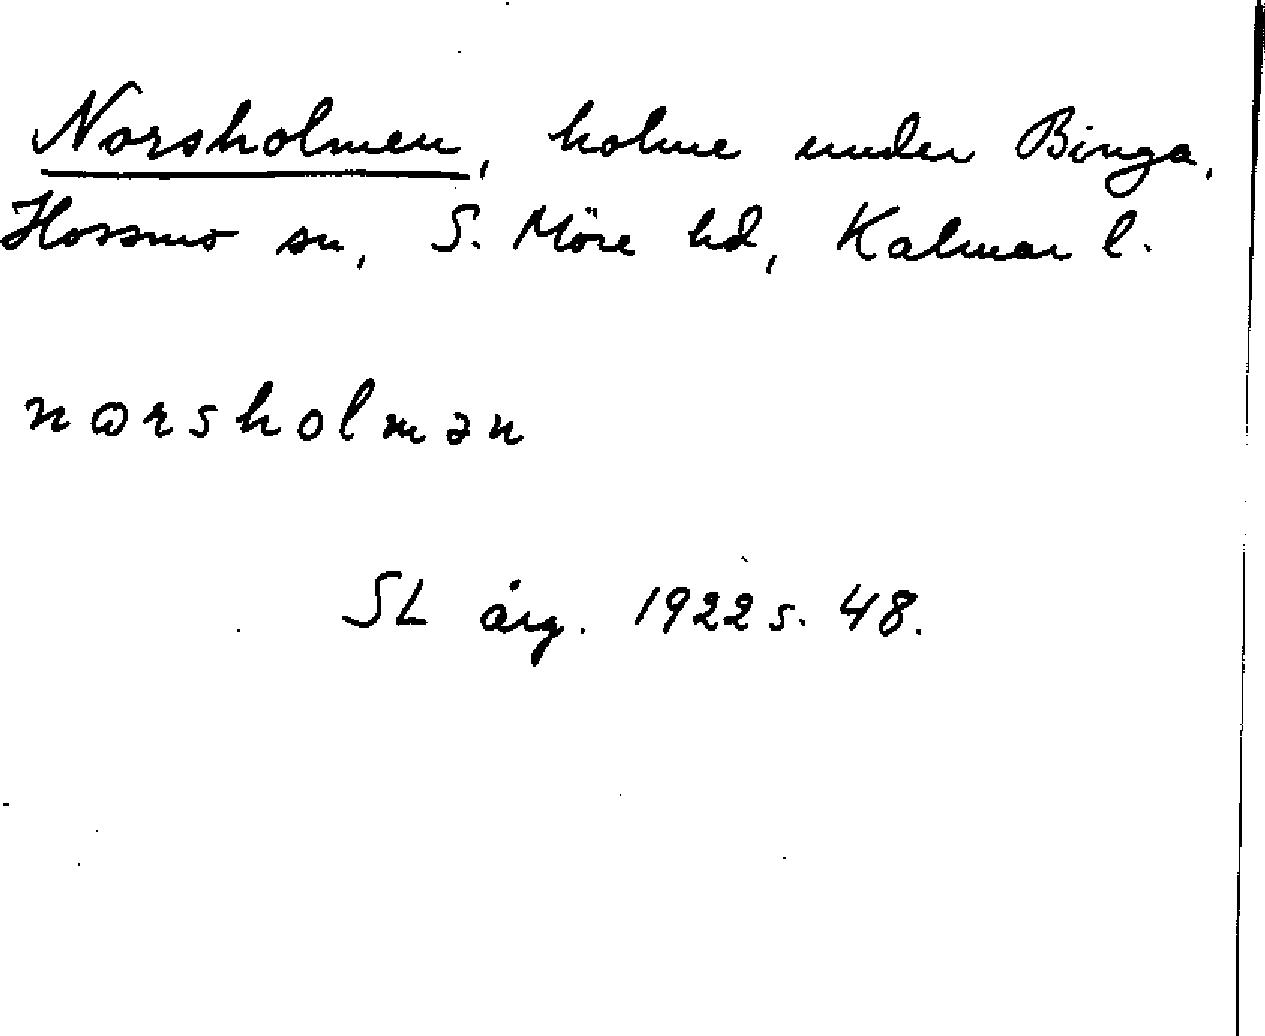 Norsholmen, holme under Binga,
Hossmo sn, S. Möre hd, Kalmar l.
norsholmən
SL årg. 1922 s. 48.